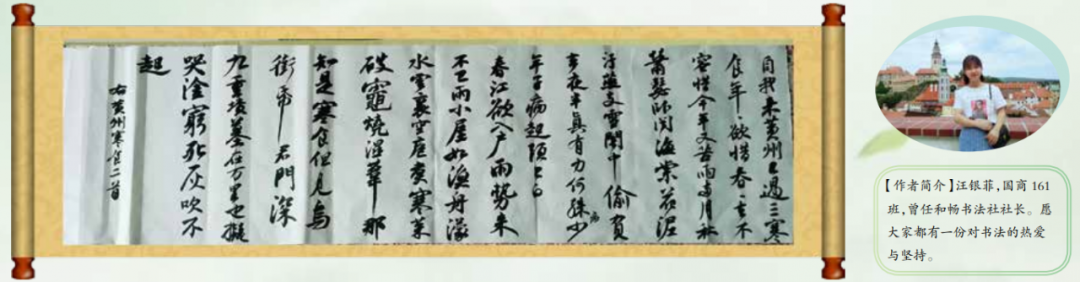 自我来黄州已過三寒
食年々欲惜春々去不
容惜今年又苦雨兩月秋
蕭瑟卧聞海棠花泥
汙燕支雪闇中偷負
去夜半真有力何殊少
年子病起頭已白
春江欲入户雨勢来
不已雨小屋如漁舟濛
水雲裏空庖煮寒菜
破竈燒濕葦那
知是寒食但見烏
銜帋 君門深
九重墳墓在万里也擬
哭塗窮死灰吹不
起
右黄州寒食二首
【作者简介】汪银菲,国商161
班,曾任和畅书法社社长。愿
大家都有一份对书法的热爱
与坚持。